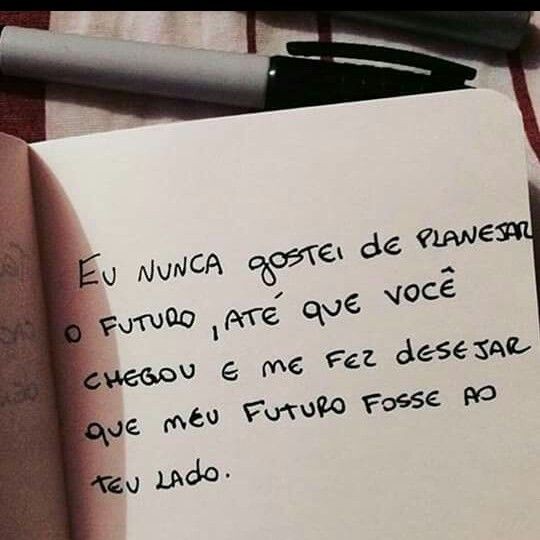 Eu nunca gostei de planejar
o futuro, até que você
chegou e me fez desejar
que meu futuro fosse ao
teu lado.